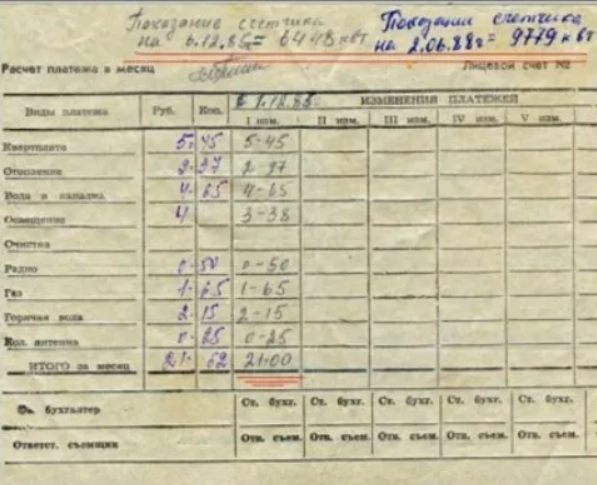 Показание счетчика
на 6.12.85= 6448 квт
Показания счетчика
на 2.06.88г= 9779 квт
Расчет платежа в месяц
Лицевой счет №
Виды платежа Руб. Коп. с 1.12.85 ИЗМЕНЕНИЯ ПЛАТЕЖЕЙ
I изм. II изм. III изм. IV изм. V изм.
Квартплата 5. 45 5-45
Отопление 2. 97 2-97
Вода и канализ. 4. 65 4-65
Освещение 4 3-38
Очистка
Радио 0- 50 0-50
Газ 1- 65 1-65
Горячая вода 2- 15 2-15
Кол. антенна 0- 25 0-25
ИТОГО за месяц 21- 62 21-00
бухгалтер Ст. бухг. Ст. бухг. Ст. бухг. Ст. бухг. Ст. бухг.
Ответст. съемщик Отв. съем. Отв. съем. Отв. съем. Отв. съем. Отв. съем.